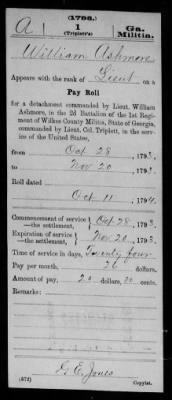 (1793.)
A | 1 | Ga.
(Triplett's) Militia.
William Ashmore
Appears with the rank of Lieut on a
Pay Roll
for a detachment commanded by Lieut. William
Ashmore, in the 2d Battalion of the 1st Regi-
ment of Wilkes County Militia, State of Georgia,
commanded by Lieut. Col. Triplett, in the service
of the United States,
from Oct 28, 1793,
to Nov 20, 1793.
Roll dated
Oct 11, 1794.
Commencement of service —the settlement, } Oct 28, 1793.
Expiration of service —the settlement, } Nov 20, 1793.
Time of service in days, Twenty four
Pay per month, 26 dollars,
Amount of pay, 20 dollars, 80 cents.
Remarks:
G. E. Jones
(572) Copyist.